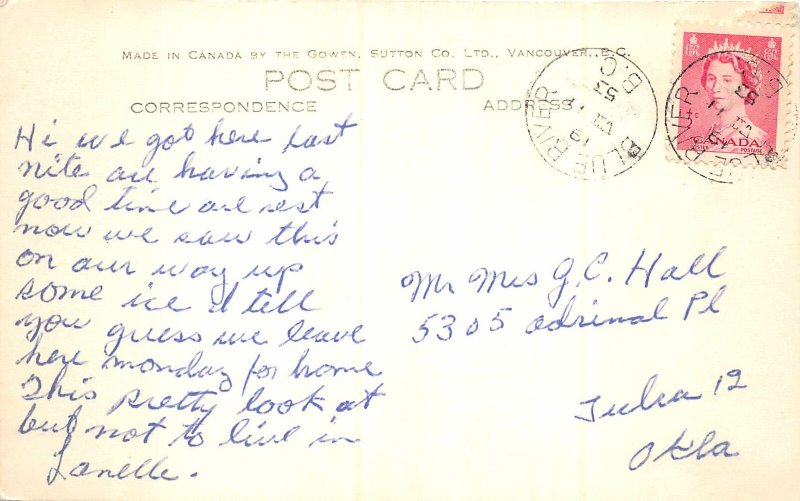 MADE IN CANADA BY THE GOWEN, SUTTON CO. LTD., VANCOUVER, B.C.
POST CARD
CORRESPONDENCE
ADDRESS
Hi we got here last
nite are having a
good time are rest
now we saw this
on our way up
some ice I tell
you guess we leave
here monday for home
This pretty look at
but not to live in
Lanelle.
BLUE RIVER
B.C.
19
VI
53
BLUE RIVER
B.C.
19
VI
53
CANADA
POSTES POSTAGE
Mr Mrs J.C. Hall
5305 adrinal Pl
Tulsa 12
Okla